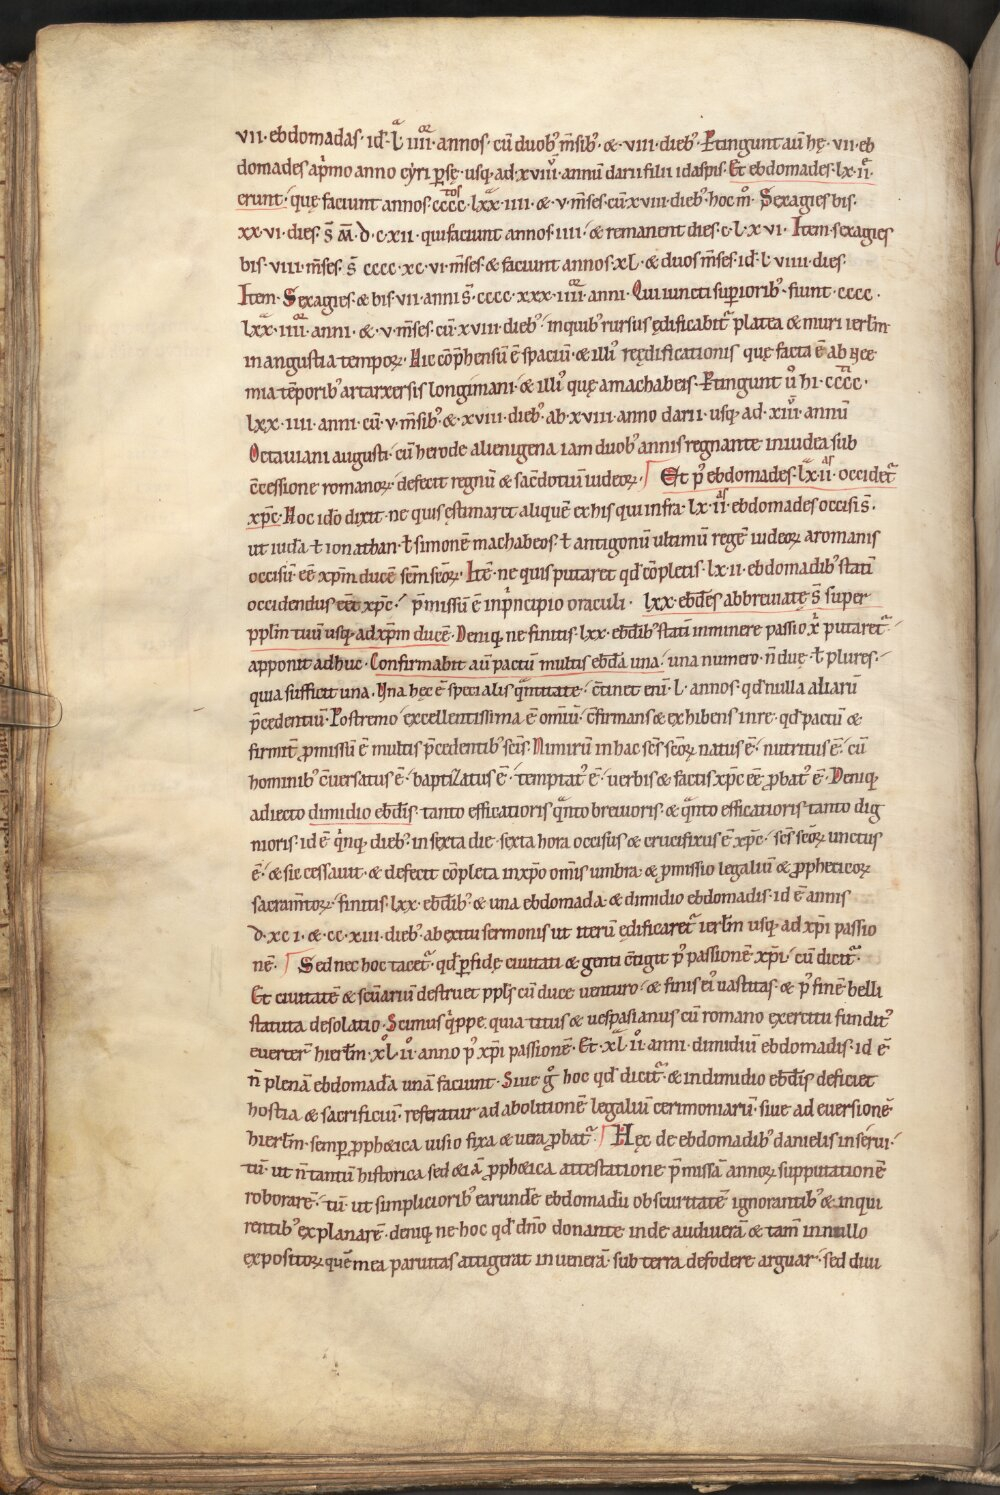 vii· ebdomadas· id· lᵃ iiiiᵒʳ· annos· cū duob; m̄sib;· & ·viii· dieb;· Ptingunt aū hę· vii· eb
domades a p̄mo anno cyri psę· usq; ad· xviiiᵛ· annū darii filii idaspis· Et ebdomades· lx· iiᵉ·
erunt· quę faciunt annos· ccccᵗᵒˢ· lxxᵃ· iiii· & v· m̄ses· cū xviii dieb;· hoc mᵒ· Sexagies bis·
xx· vi· dies· s̄ M̄· d· c· xii· qui faciunt annos· iiii· & remanent dies· c· l· x vi· Item· sexagies
bis· viii· m̄ses· s̄ cccc· xc· vi· m̄ses· & faciunt annos· xl· & duos m̄ses· id· l· viiii· dies·
Item· Sexagies· & bis· vii· anni s̄· cccc· xxx· iiiiᵒʳ· anni· Qui iuncti supiorib;· fiunt· cccc·
lxxᵃ· iiiiᵒʳ· anni· & v· m̄ses· cū· xviii· dieb;· in quib; rursus ędificabit᷑ platea & muri ierlm̄·
in angustia tempoꝝ· Hic cōp̄hensū ē spaciū· & illi᷒ reędificationis quę facta ē ab nee
mia tēporib; artarxersis longimani· & illi᷒ quę a machabeis· Ptingunt ū hi· cccc·
lxx· iiii· anni· cū· v· m̄sib;· & xviii· dieb;· ab· xviii· anno darii· usq; ad· xiiiᵛ· annū
Octauiani augusti· cū herode alienigena iam duob; annis regnante in iudea sub
c̄cessione romanoꝝ· defecit regnū & sac̄dotiū iudeoꝝ· Et p᷒ ebdomades· lxᵃ· iiᵃˢ· occidet᷑
xp̄c· Hoc id̄o dixit· ne quis ęstimaret aliquē ex his qui infra· lx· iiᵃˢ ebdomades occisi s̄·
ut iuda· ł ionathan· ł simonē machabeos· ł antigonū ultimū regē iudeoꝝ a romanis
occisū· eē xp̄m ducē· sc̄m sc̄oꝝ· Itē· ne quis putaret qd̄ cōpletis· lx ii· ebdomadib; statī
occidendus eēt xp̄c· p̄missū ē in p̄ncipio oraculi· lxx· ebd̄es abbreuiatę s̄ super
pplm̄ tuū usq; ad xp̄m ducē· Deniq; ne finitis· lxx· ebd̄ib; statī inminere passio xᶦ putaret᷑·
apponit adhuc· Confirmabit aū pactū multis ebd̄a una· una numero· n̄ duę· ł plures·
quia sufficit una· Vna hęc ē specialis q̄ntitate· c̄tinet enī· l· annos· qd̄ nulla aliarū
p̄cedentiū· Postremo excellentissima ē om̄iū· c̄firmans & exhibens in re· qd̄ pactū &
firmit᷑ pmissū ē multis p̄cedentib; sc̄is· Nimirū in hac sc̄s sc̄oꝝ natus ē· nutritus ē· cū
hominib; c̄uersatus ē· baptizatus ē· temptat᷒ ē· uerbis & factis xp̄c eē pbat᷒ ē· Deniq;
adiecto dimidio ebd̄is· tanto efficatioris q̄nto breuioris· & q̄nto efficatioris tanto dig
nioris· id ē q̄nq; dieb;· in sexta die· sexta hora occisus & crucifixus ē xp̄c· sc̄s sc̄oꝝ unctus
ē· & sic cessauit· & defecit cōpleta in xpo om̄is umbra· & pmissio legaliū & pphecieoꝝ
sacram̄toꝝ· finitis· lxx· ebd̄ib; & una ebdomada· & dimidio ebdomadis· id ē annis
d· xc i· & cc· xiii· dieb;· ab exitu sermonis ut iterū ędificaret᷑ ierlm̄ usq; ad xp̄i passio
nē· Sed nec hoc tacet᷑· qd̄ pfidę ciuitati & genti c̄tigit p᷒ passionē xp̄i· cū dicit᷑·
Et ciuitatē & sc̄uariū destruet ppls̄ cū duce uenturo· & finis ei᷒ uastitas· & p᷒ finē belli
statuta desolatio· Scimus q̄ppe quia titus & uespasianus cū romano exercitu fundit᷒
euerter̄ hierlm̄· xlᵒ· iiᵒ· anno p᷒ xp̄i passionē· Et· xlᵃ iiᵒ· anni· dimidiū ebdomadis· id ē
n̄ plenā ebdomadā unā faciunt· Siue gᵒ hoc qd̄ dicit᷑· & in dimidio ebd̄is deficiet
hostia & sacrificiū· referatur ad abolitionē legaliū cerimoniarū· siue ad euersionē
hierlm̄· semp pphetica uisio fixa & uera pbat᷑· Hęc de ebdomadib; danielis inserui·
tū· ut n̄ tantū historica sed & iā pphetica attestatione p̄missā annoꝝ supputationē
roborarē· tū· ut simpliciorib; earundē ebdomadū obscuritatē ignorantib; & inqui
rentib; explanarē· deniq; ne hoc qd̄ dn̄o donante inde audiuerā & tam̄ in nullo
expositoꝝ quē mea paruitas attigerat inuenerā· sub terra defodere arguar· sed diui